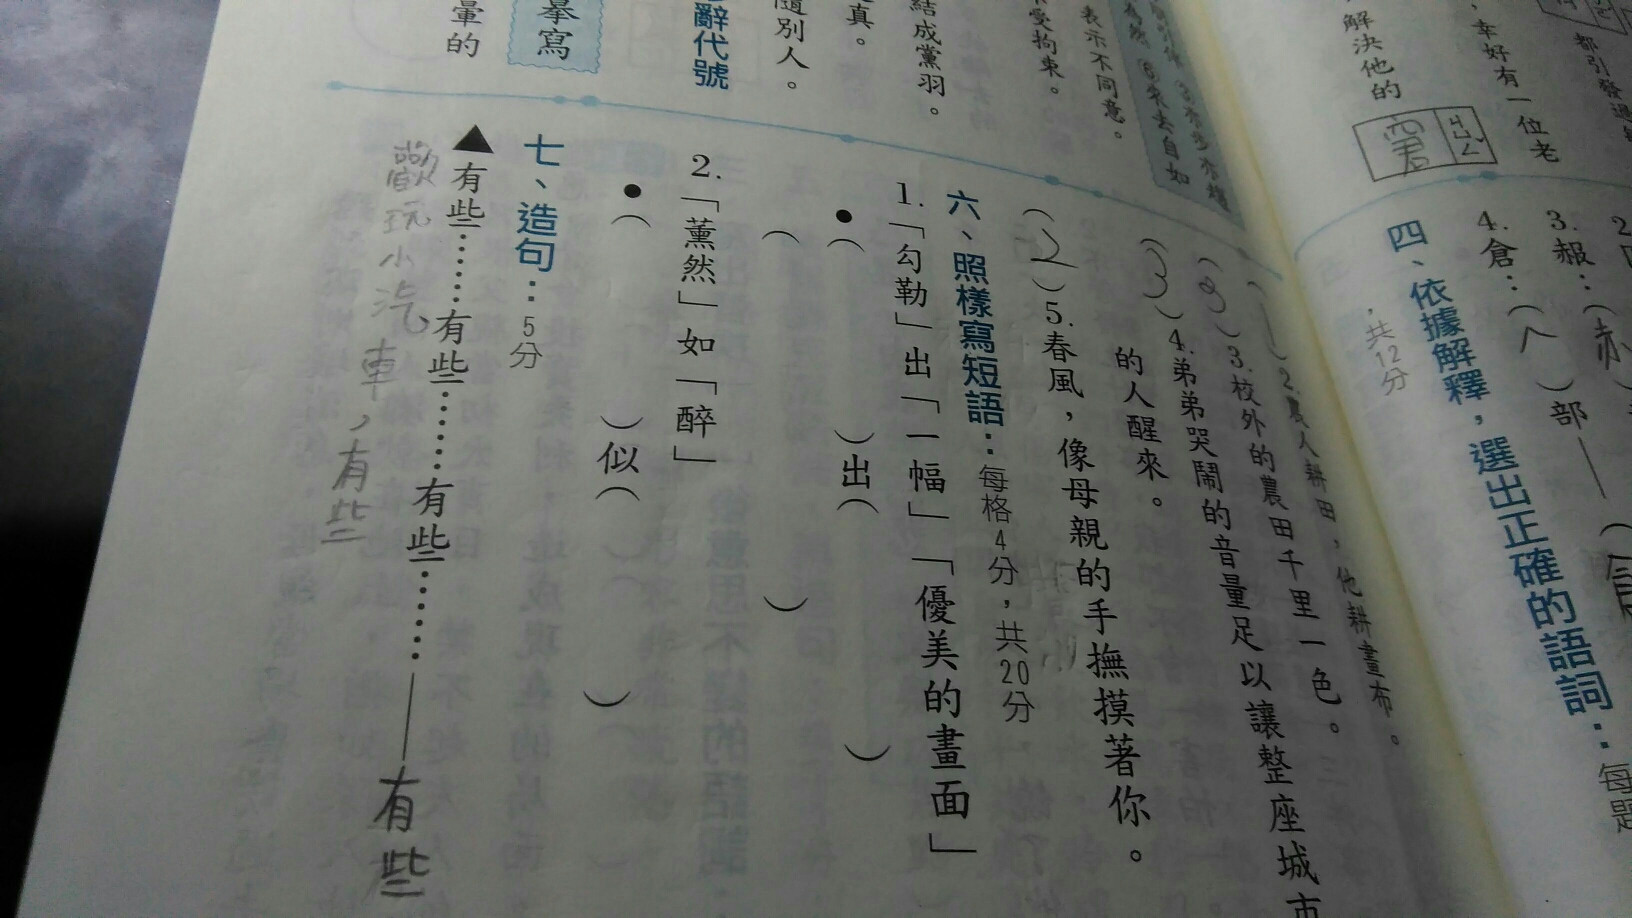 都引發
，幸好有一位老
解決他的
窘
四、依據解釋，選出正確的語詞：每題
，共12分
3.赧：（赤
4.倉：（人）部—
表示不同意。
受拘束。
結成黨羽。
真。
隨別人。
辭代號
摹寫
暈的
2.農人耕田，他耕畫布。
3.校外的農田千里一色。
（3）4.弟弟哭鬧的音量足以讓整座城市
的人醒來。
（2）5.春風，像母親的手撫摸著你。
六、照樣寫短語：每格4分，共20分
1.「勾勒」出「一幅」「優美的畫面」
●（　）出（　）
（　）
2.「薰然」如「醉」
●（　）似（　）
七、造句：5分
▲有些……有些……有些……——有些
歡玩小汽車，有些